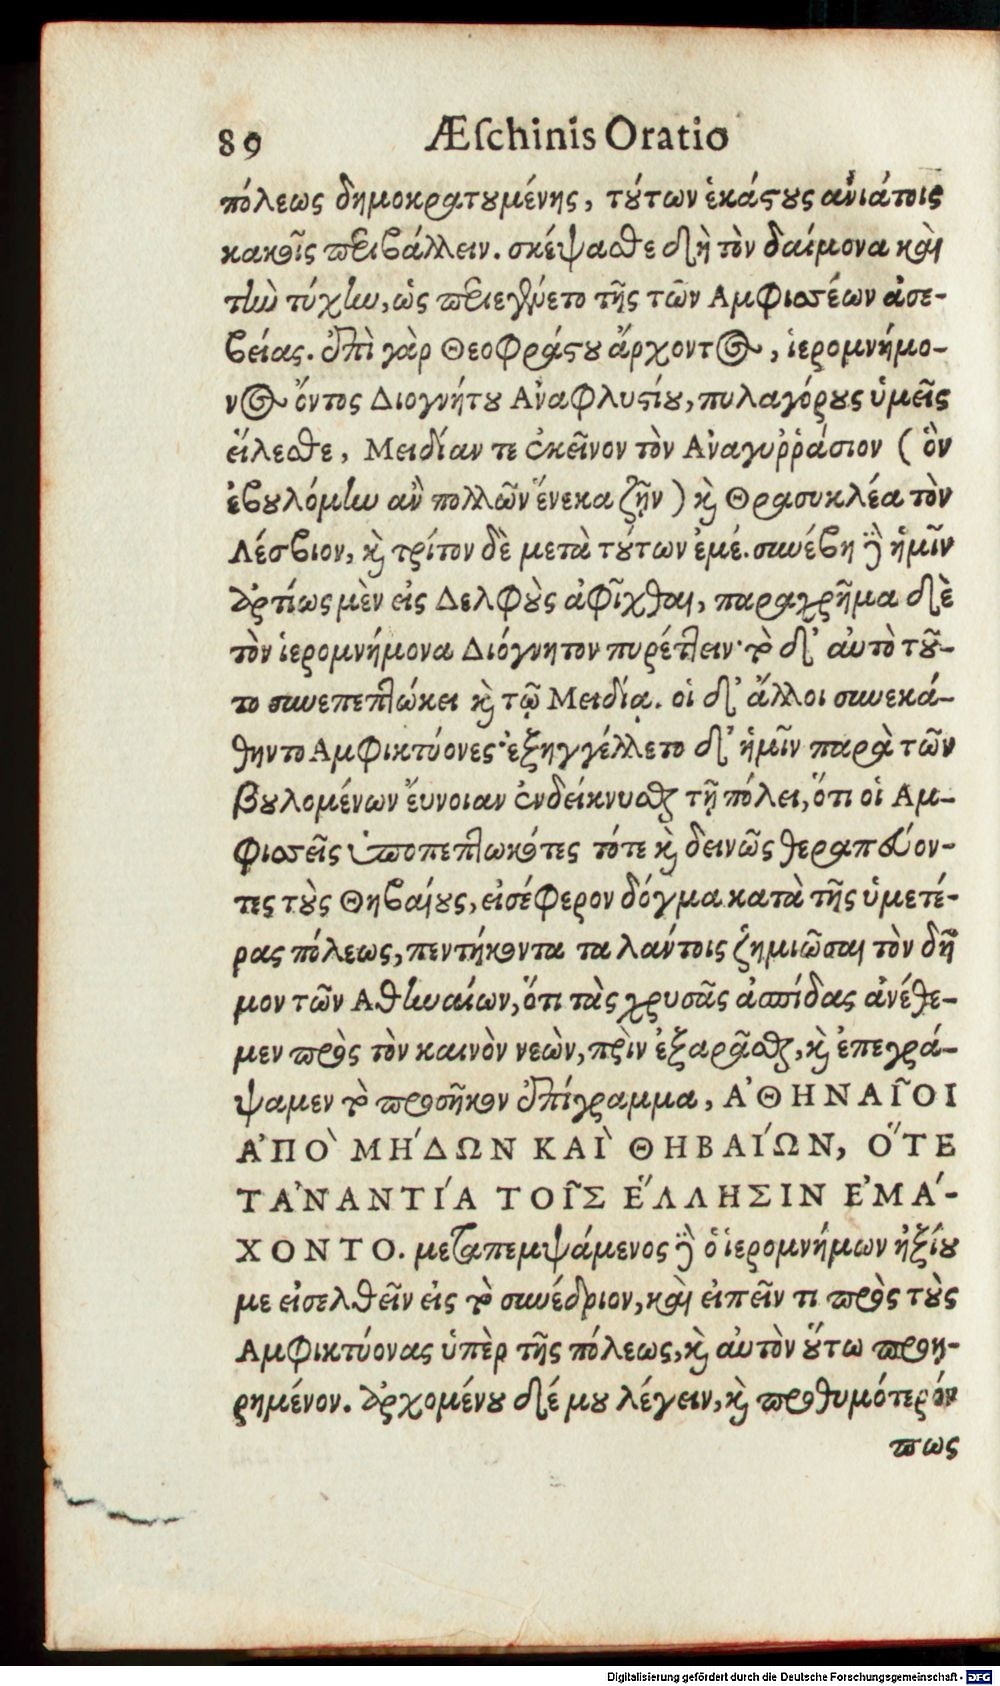 89 Æſchinis Oratio
πόλεως δημοκρατȣμένης, τȣ́των ἑκάϛȣς ἀνιάτοις
κακοῖς περιβάλλειν. σκέψασθε δὴ τὸν δαίμονα καὶ
τὴν τύχην, ὡς περιεγένετο τῆς τῶν Αμφισσέων ἀσε-
βείας. ἐπὶ γὰρ Θεοφράϛȣ ἄρχοντος, ἱερομνήμο-
νος ὄντος Διογνήτȣ Αναφλυϛίȣ, πυλαγόρȣς ὑμεῖς
εἵλεσθε, Μειδίαν τε ἐκεῖνον τὸν Αναγυῤῥάσιον (ὃν
ἐβȣλόμην ἂν πολλῶν ἕνεκα ζῇν) κ̀ Θρασυκλέα τὸν
Λέσβιον, κ̀ τρίτον δὲ μετὰ τȣ́των ἐμέ. συνέβη ὃ ἡμῖν
ἀρτίως μὲν εἰς Δελφȣ̀ς ἀφῖχθαι, παραχρῆμα δὲ
τὸν ἱερομνήμονα Διόγνητον πυρέτλειν· τὸ δ᾽ αὐτὸ τȣ͂-
το συνεπεπτώκει κ̀ τῷ Μειδίᾳ. οἱ δ᾽ ἄλλοι συνεκά-
θηντο Αμφικτύονες· ἐξηγγέλλετο δ᾽ ἡμῖν παρὰ τῶν
βȣλομένων ἔυνοιαν ἐνδείκνυσθαι τῇ πόλει, ὅτι οἱ Αμ-
φισσεῖς ὑποπεπτωκότες τότε κ̀ δεινῶς θεραπεύον-
τες τȣ̀ς Θηβαίȣς, εἰσέφερον δόγμα κατὰ τῆς ὑμετέ-
ρας πόλεως, πεντήκοντα ταλάντοις ζημιῶσαι τὸν δῆ
μον τῶν Αθηναίων, ὅτι τὰς χρυσᾶς ἀσπίδας ἀνέθε-
μεν πρὸς τὸν καινὸν νεὼν, πρὶν ἐξαρᾶσθαι, κ̀ ἐπεγρά-
ψαμεν τὸ προσῆκον ἐπίγραμμα, Α᾽ΘΗΝΑΙ͂ΟΙ
Α᾽ΠΟ` ΜΗ´ΔΩΝ ΚΑΙ` ΘΗΒΑΙ´ΩΝ, Ο῞ΤΕ
ΤΑ᾽ΝΑΝΤΙ´Α ΤΟΙ͂Σ Ε῞ΛΛΗΣΙΝ Ε᾽ΜΑ´-
ΧΟΝΤΟ. μεταπεμψάμενος ὃ ὁ ἱερομνήμων ἠξίȣ
με εἰσελθεῖν εἰς τὸ συνέδριον, καὶ εἰπεῖν τι πρὸς τȣ̀ς
Αμφικτύονας ὑπὲρ τῆς πόλεως, κ̀ αὐτὸν ȣ̔́τω προῃ-
ρημένον. ἀρχομένȣ δέ μȣ λέγειν, κ̀ προθυμότερόν
πως
Digitalisierung gefördert durch die Deutsche Forschungsgemeinschaft - DFG